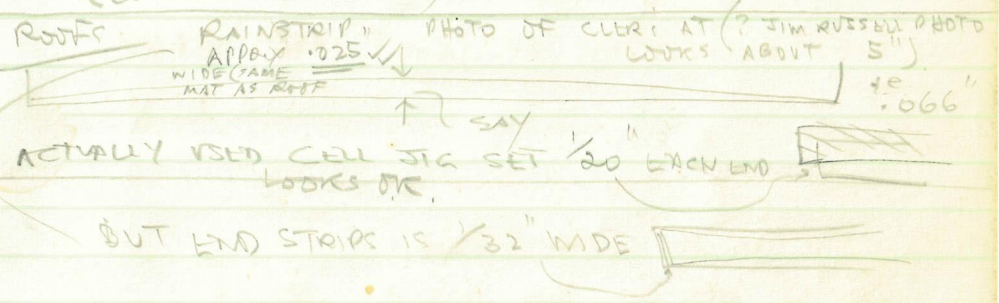 ROOFS
RAINSTRIP" PHOTO OF CLER: AT (? JIM RUSSELL PHOTO
APPROX .025 LOOKS ABOUT 5")
WIDE (SAME
MAT AS ROOF
ie .066"
SAY
ACTUALLY USED CELL JIG SET 1/20" EACH END
LOOKS OK.
BUT END STRIPS IS 1/32" WIDE